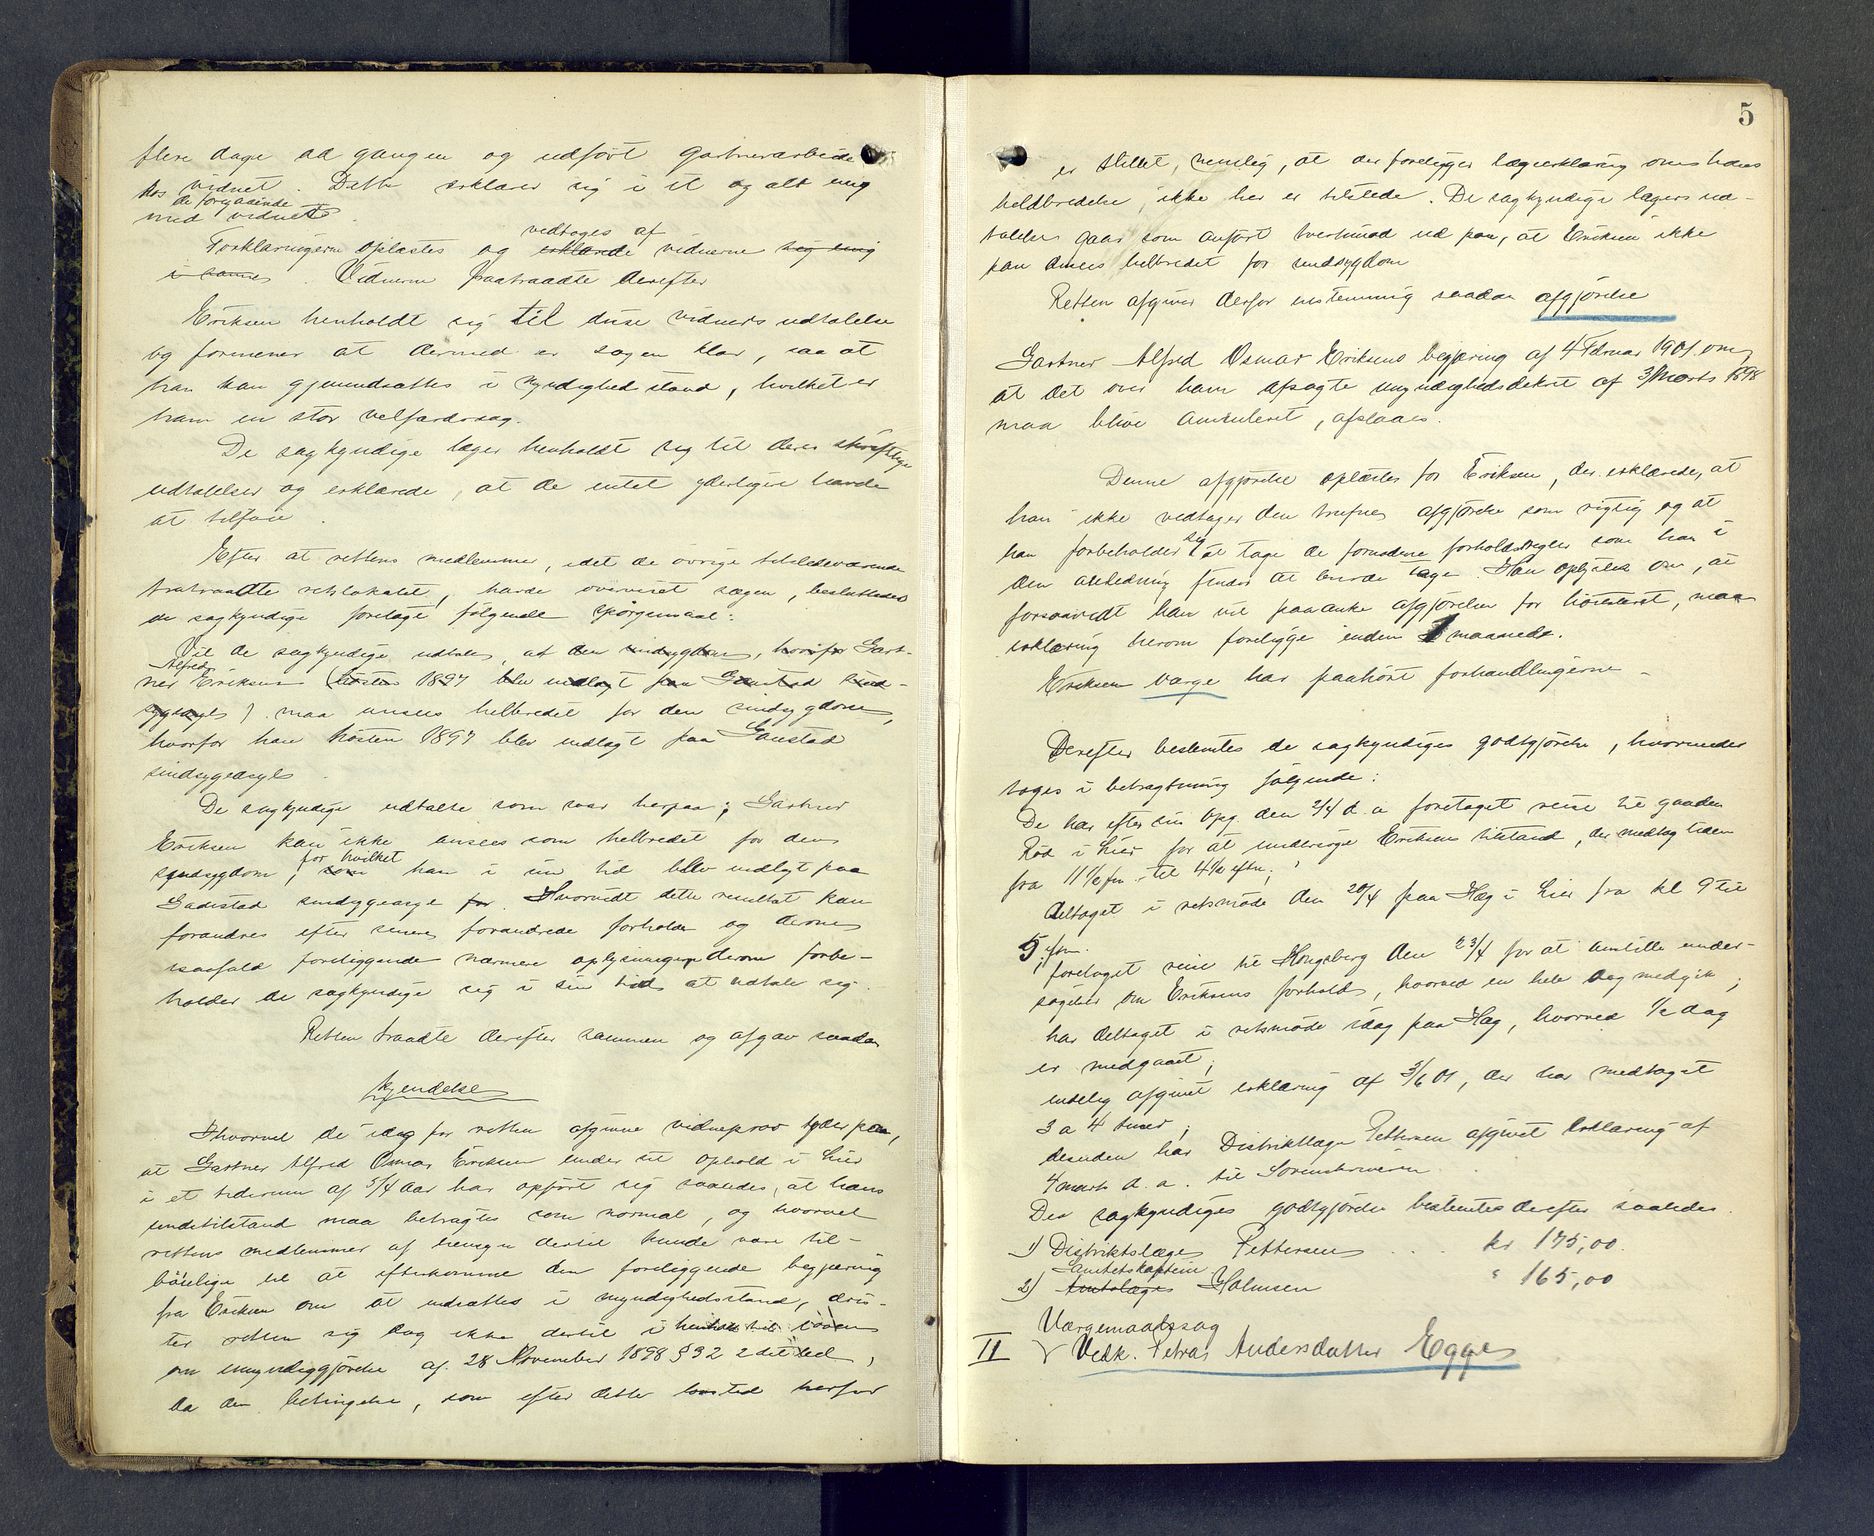 flere dage ad gangen og udført gartnerarbeide
hos vidnet. Dette erklærer sig i et og alt enig
de forgaaende
med vidnets
vedtoges af
Forklaringerne oplæstes og erklærede vidnerne sig enig
i samme. Vidnerne fratraadte derefter
Eriksen henholdt sig til disse vidners udtalelse
og formener at dermed er sagen klar, saa at
han kan gjenindsættes i myndighedsstand, hvilket er
ham en stor velfærdssag.
De sagkyndige læger henholdt sig til deres skriftlige
udtalelser og erklærede, at de intet yderligere havde
at tilføie.
Efter at rettens medlemmer, idet de øvrige tilstedeværende
fratraadte retslokalet, havde overveiet sagen, besluttedes
de sagkyndige forelagt følgende spørgsmaal:
Vil de sagkyndige udtale, at den sindsygdom, hvorfor Gart-
Alfred
ner Eriksen (høsten 1897 blev indlagt paa Gaustad sind-
sygeasyl) maa ansees helbredet for den sindsygdom,
hvorfor han høsten 1897 blev indlagt paa Gaustad
sindsygeasyl.
De sagkyndige udtalte som svar herpaa: Gartner
Eriksen kan ikke ansees som helbredet for den
for hvilket
sindsygdom, som han i sin tid blev indlagt paa
Gaustad sindsygeasyl for. Hvorvidt dette resultat kan
forandres efter senere forandrede forholde og derom
isaafald foreliggende nærmere oplysninger derom forbe-
holder de sagkyndige sig i sin tid at udtale sig.
Retten traadte derefter sammen og afgav saadan
kjendelse
Ihvorvel de idag for retten afgivne vidneprov tyder paa,
at Gartner Alfred Osmar Eriksen under sit ophold i Lier
i et tidsrum af 5/4 aar har opført sig saaledes, at hans
sindstilstand maa betragtes som normal, og hvorvel
rettens medlemmer af hensyn dertil kunde være til-
bøielige til at efterkomme den foreliggende begjæring
fra Eriksen om at udsættes i myndighedsstand, dris-
ter retten sig dog ikke dertil i henhold til loven
om umyndiggjørelse af 28 November 1898 § 32 2det led,
da den betingelse, som efter dette sted herfor
5
er stillet, nemlig, at der foreligger lægeerklæring om hans
helbredelse, ikke her er tilstede. De sagkyndige lægers ud-
talelse gaar som anført tvertimod ud paa, at Eriksen ikke
kan ansees helbredet for sindsygdom
Retten afgiver derfor enstemmig saadan afgjørelse
Gartner Alfred Osmar Eriksens begjæring af 4 Februar 1901 om,
at det over ham afsagte umyndighedsdekret af 3 Marts 1898
maa blive annulleret, afslaaes.
Denne afgjørelse oplæstes for Eriksen, der erklærede, at
han ikke vedtager den trufne afgjørelse som rigtig og at
sig
han forbeholder at tage de fornødne forholdsregler som han i
den anledning finder at burde tage. Han oplystes om, at
forsaavidt han vil paaanke afgjørelsen for høiesteret, maa
erklæring herom foreligge inden 1 maaned.
Eriksens værge har paahørt forhandlingerne
Derefter bestemtes de sagkyndiges godtgjørelse, hvorunder
toges i betragtning følgende:
De har efter sin opg. den 2/4 d.a foretaget reise til gaarden
Rød i Lier for at undersøge Eriksens tilstand, der medtog tiden
fra 11 1/2 fm. til 4 1/2 eftm.;
deltaget i retsmøde den 20/4 paa Hæg i Lier fra kl 9 til
5 fm.
foretaget reise til Kongsberg den 23/4 for at anstille under-
søgelser om Eriksens forhold, hvorved en hel dag medgik;
har deltaget i retsmøde idag paa Hæg, hvorved 1/2 dag
er medgaaet;
endelig afgivet erklæring af 3/6 01, der har medtaget
3 a 4 timer;
desuden har Distriktslæge Pettersen afgivet Erklæring af
4 marts d.a. til Sorenskriveren.
De sagkyndiges godtgjørelse bestemtes derefter saaledes.
1) Distriktslæge Pettersen . . . kr 175,00.
Sanitetskaptein
2) Amtslæge Holmsen " 165,00
Værgemaalssag
II v Vedk. Petra Andersdatter Egge